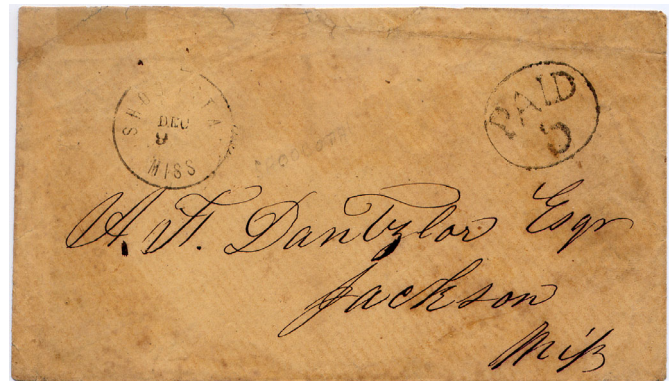 DEC
9
MISS
PAID
5
A. F. Dantzlor Esqr
Jackson
Miſs